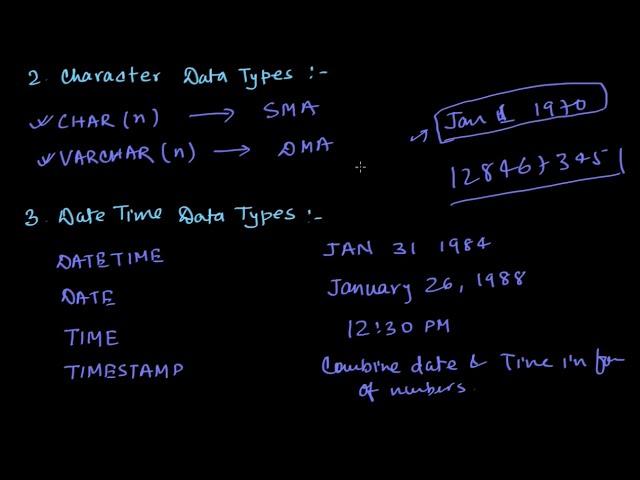 2. Character Data Types :-
CHAR (n) → SMA
VARCHAR (n) → DMA
Jan 1 1970
1284673451
3. Date Time Data Types :-
DATETIME JAN 31 1984
DATE January 26, 1988
TIME 12:30 PM
TIMESTAMP Combine date & Time in
of numbers.